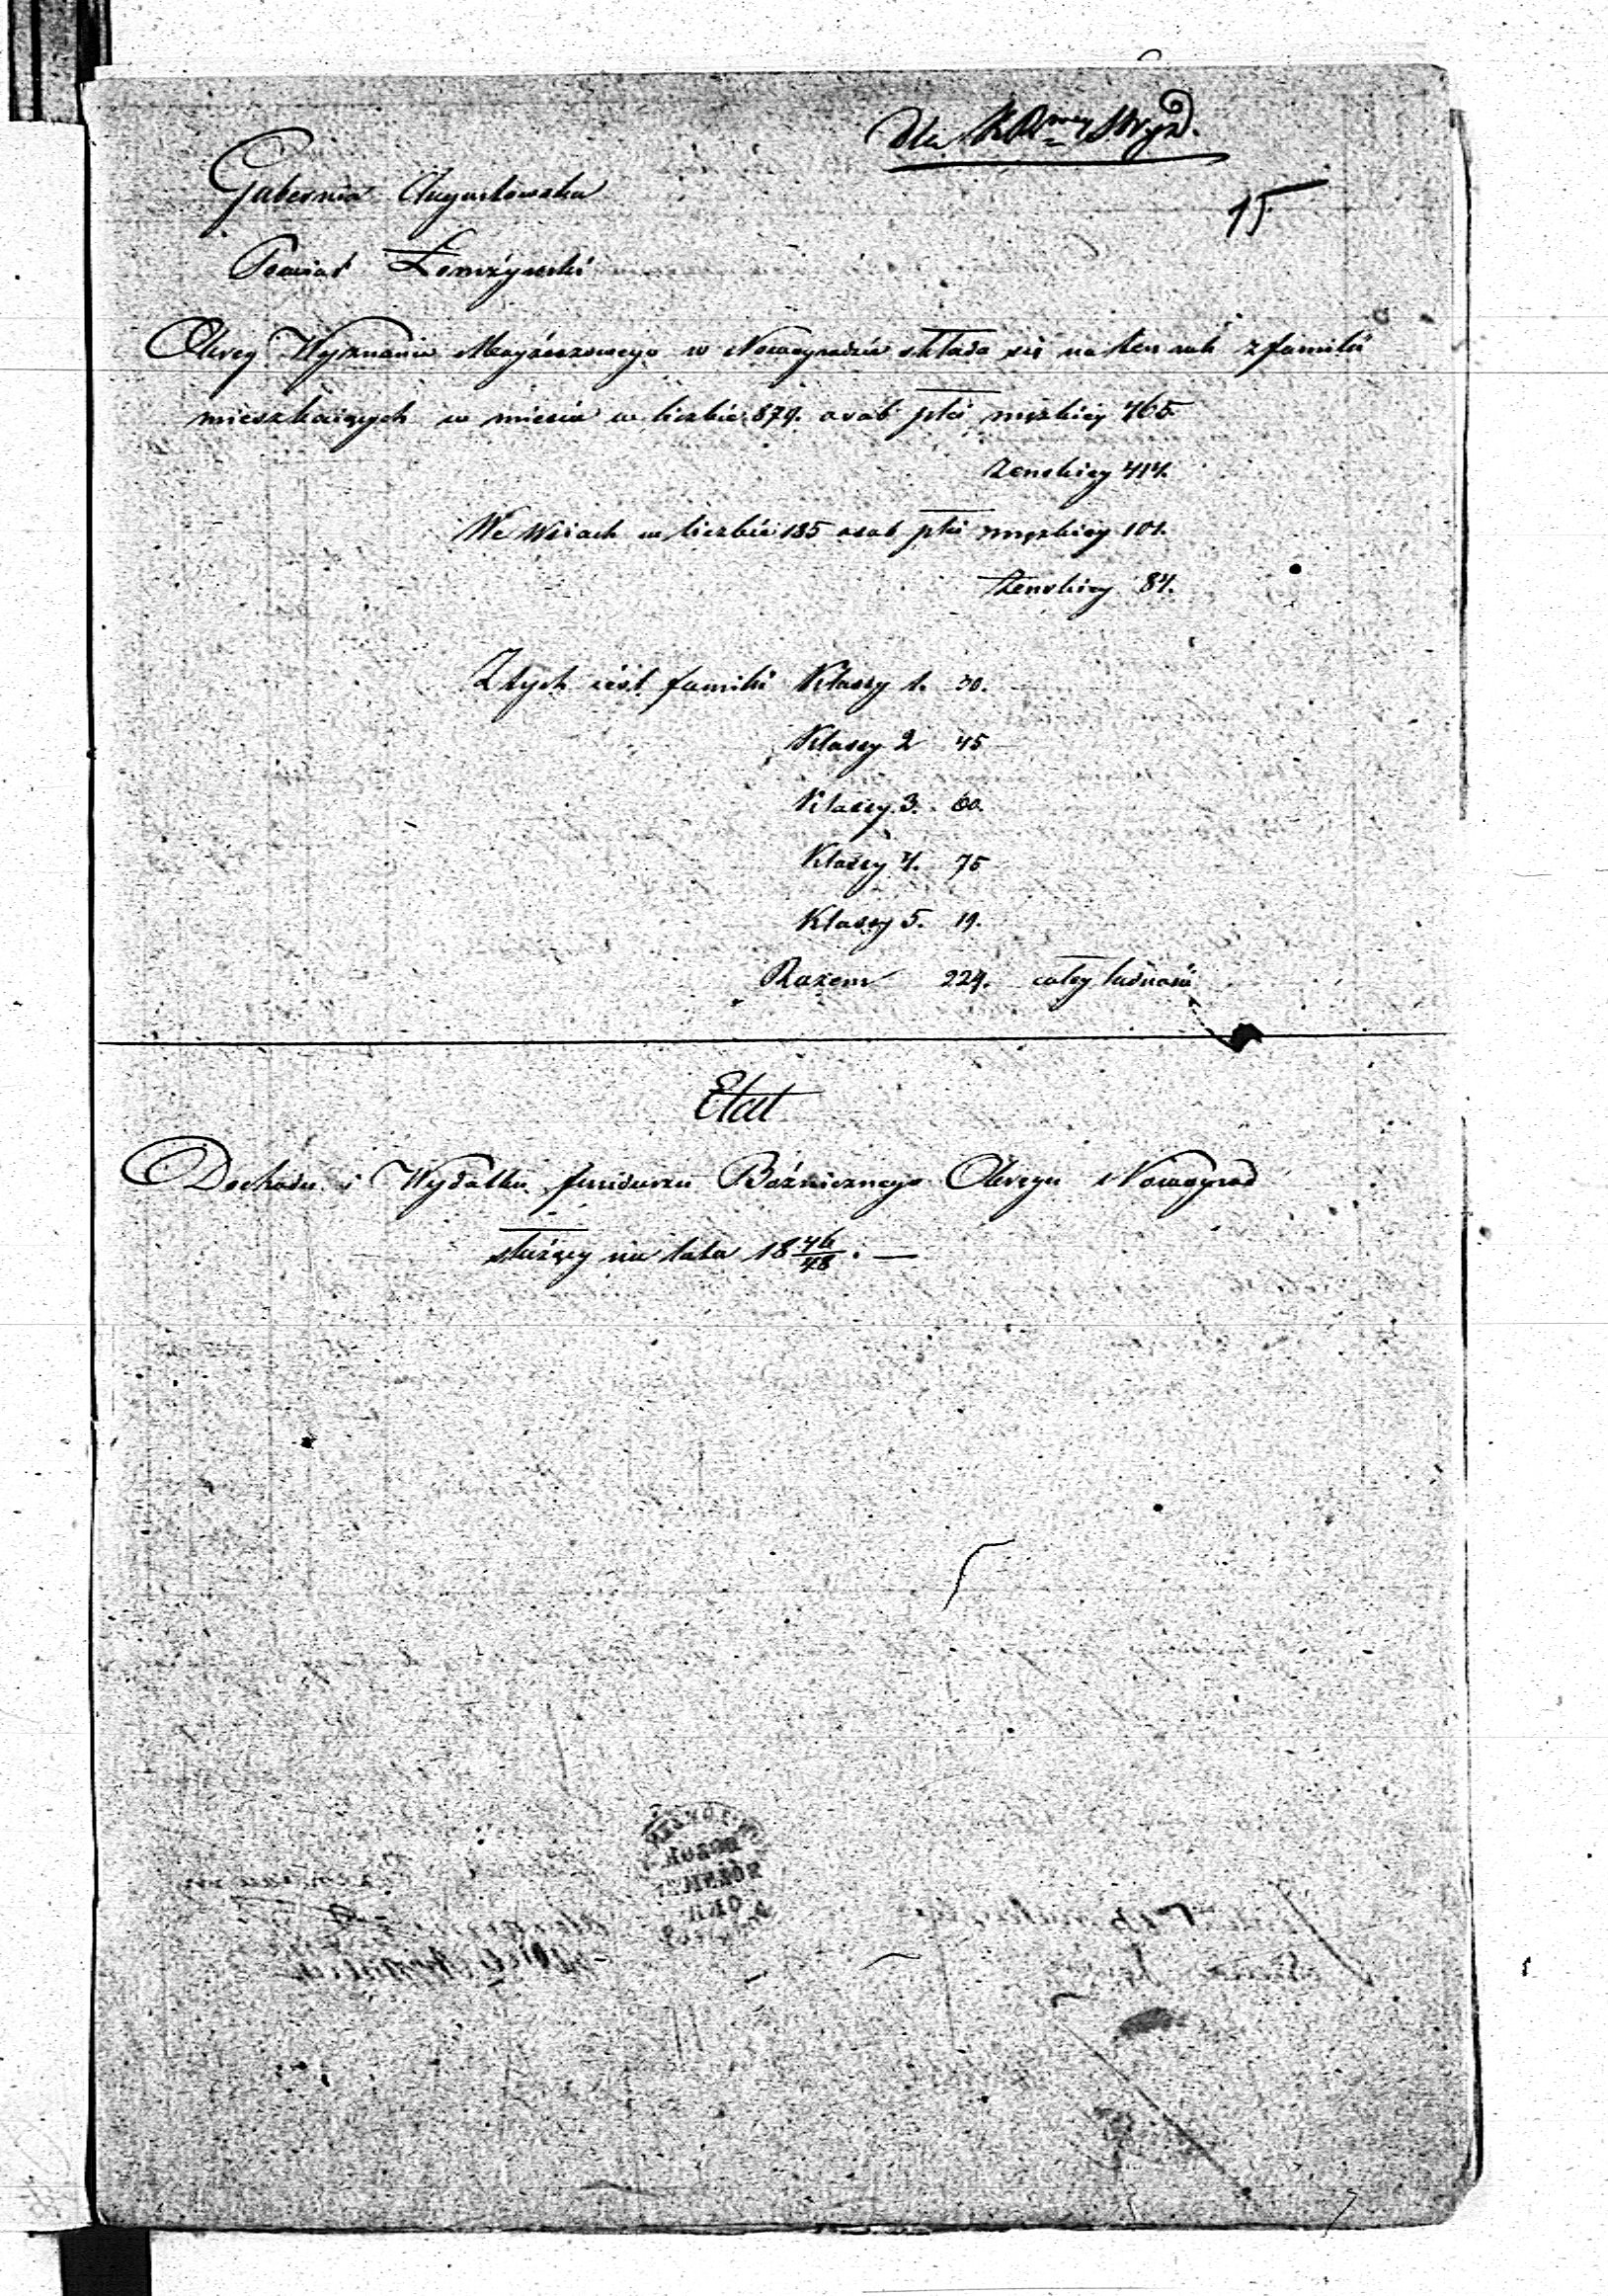 Dla K R
15
Gubernia Augustowska
Powiat Łomżyński
Okręg Wyznania Mojżeszowego w Nowogrodzie składa się na ten rok z familii
mieszkaiących w mieście w liczbie 879. osób płci męzkiey 465.
żenskiey 414.
We Wsiach w liczbie 185 osób płci męzkiey 101.
żenskiey 84.
Z tych iest familii Klassy 1. 30.
Klassy 2 45
Klassy 3. 60.
Klassy 4. 75
Klassy 5. 19.
Razem 229. całey ludności
Etat
Dochodu i Wydatku funduszu Bóżnicznego Okręgu Nowogrod
służący na lata 18 46/48. —